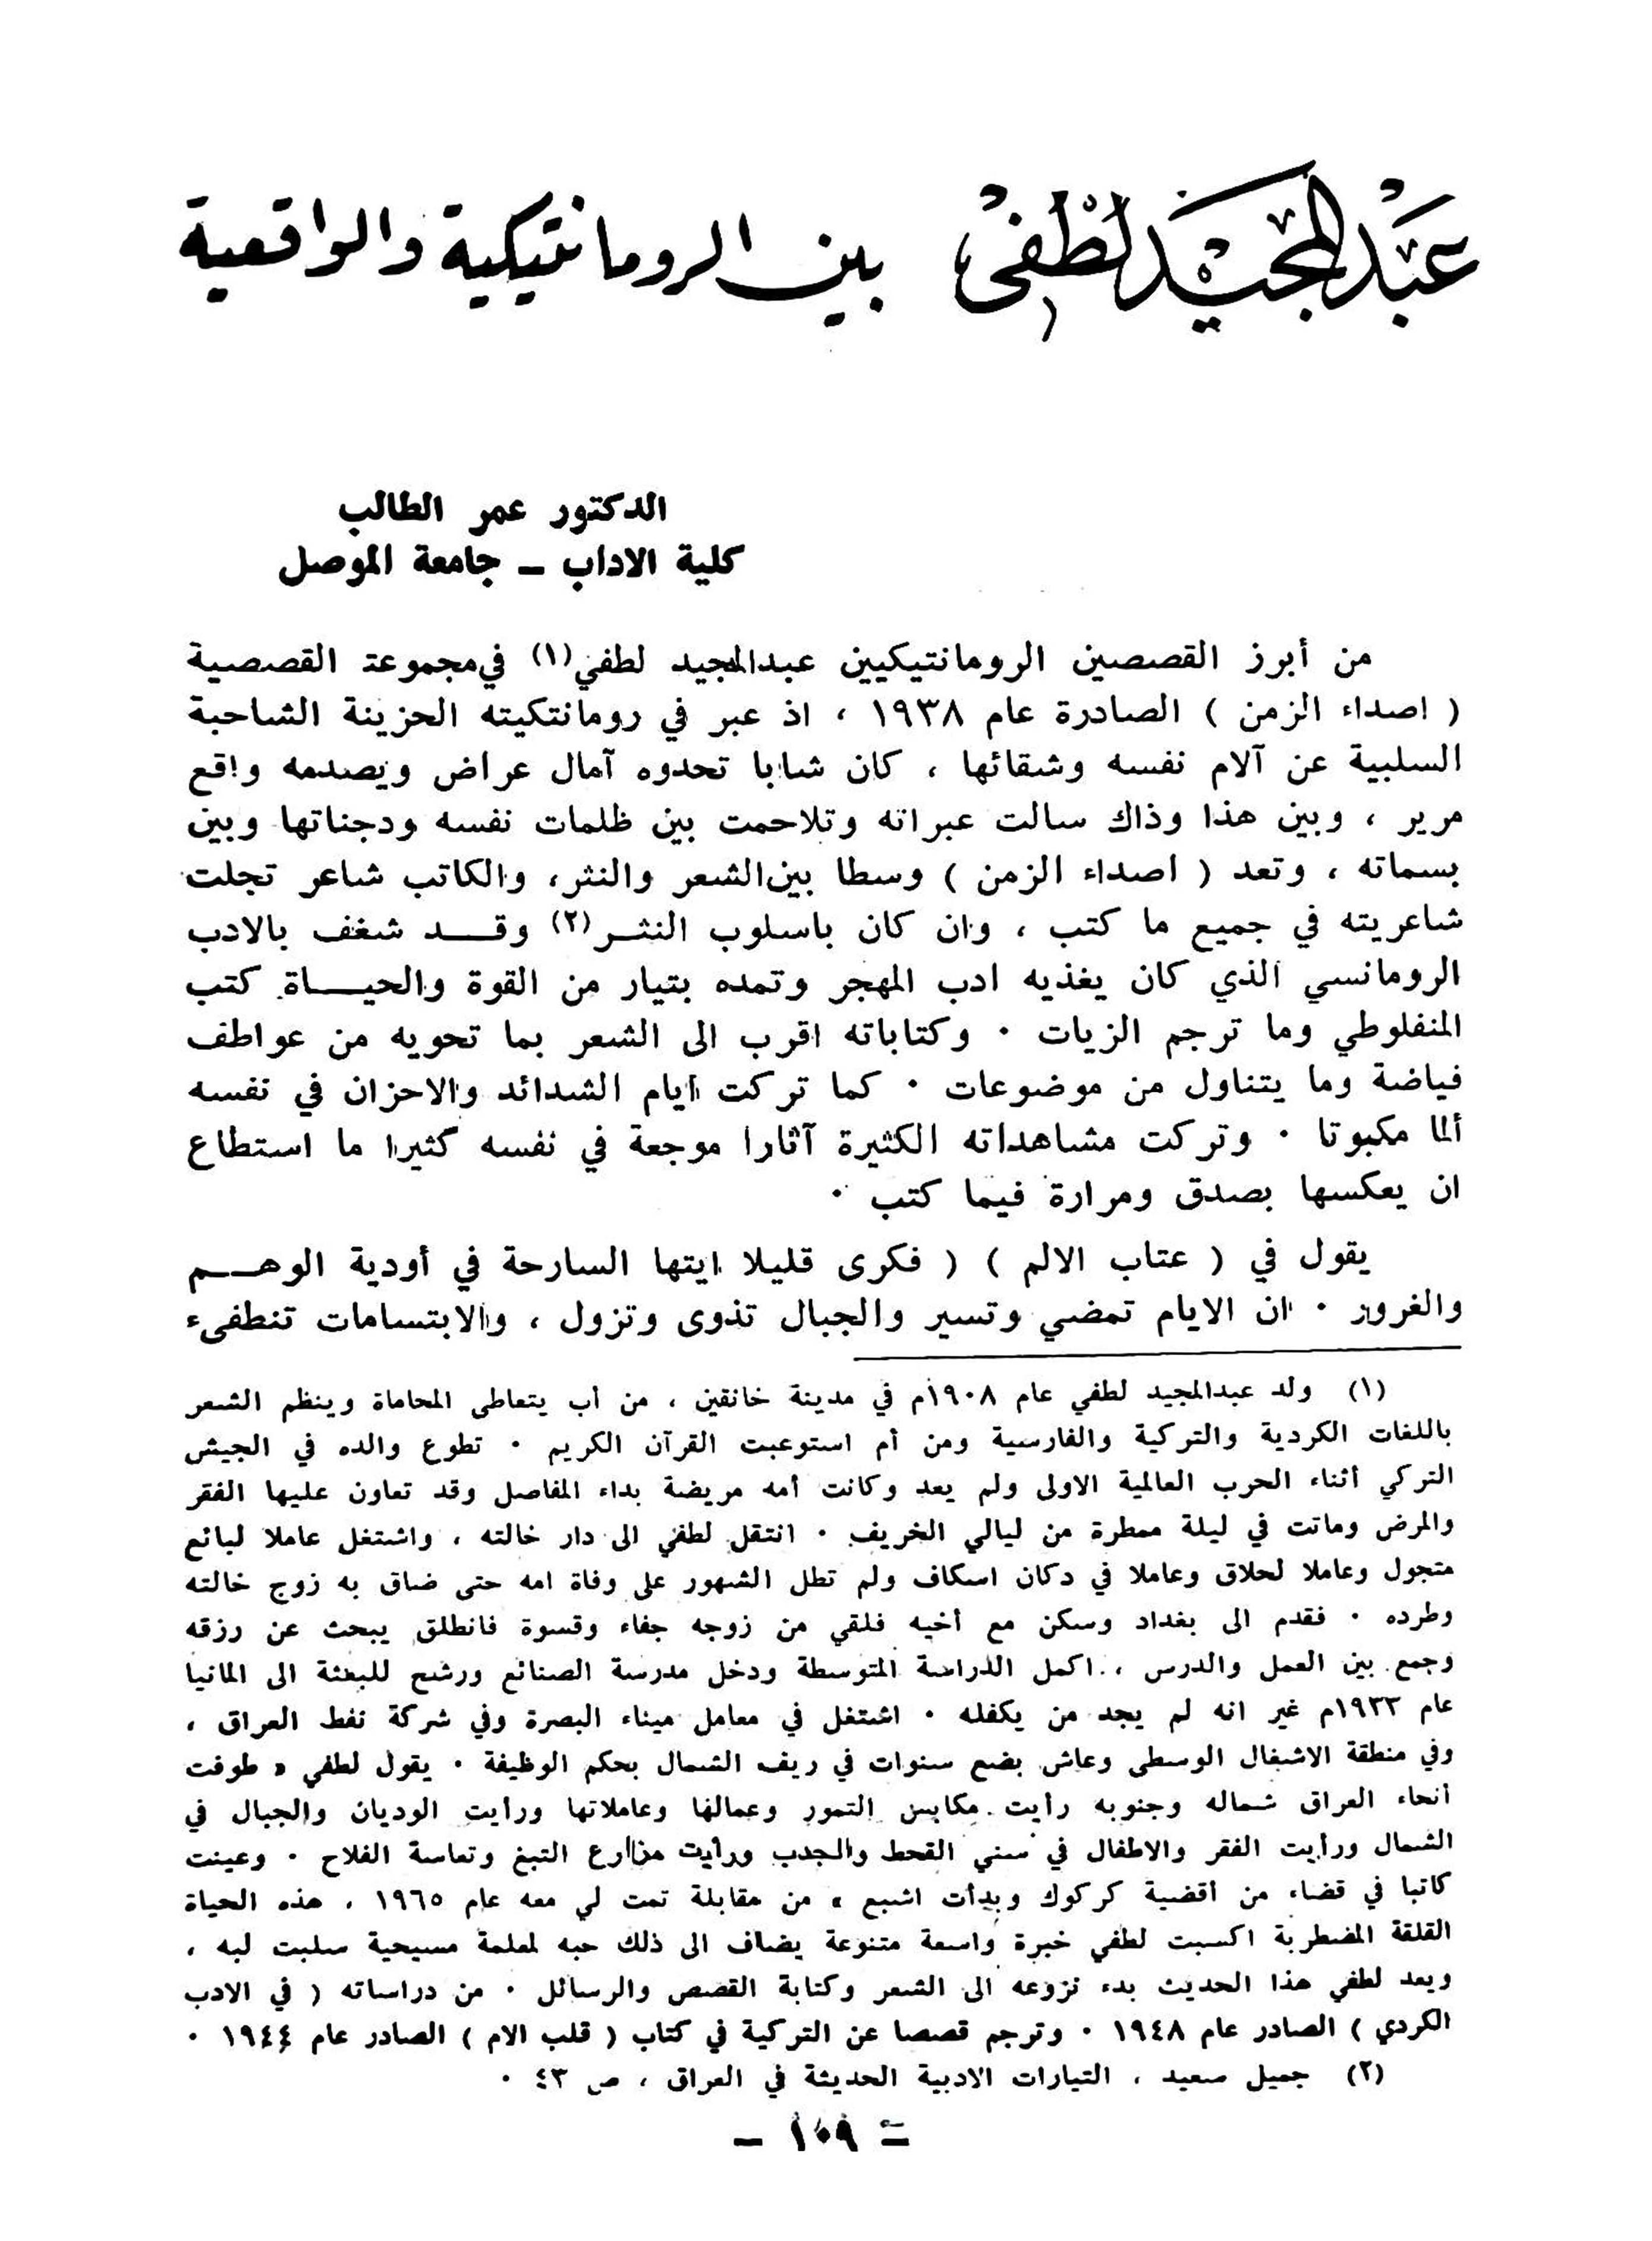 عبد المجيد لطفي بين الرومانتيكية والواقعية
الدكتور عمر الطالب
كلية الاداب ـ جامعة الموصل
من أبرز القصصين الرومانتيكيين عبدالمجيد لطفي(١) في مجموعة القصصية
( اصداء الزمن ) الصادرة عام ١٩٣٨ ، اذ عبر في رومانتكيته الحزينة الشاحبة
السلبية عن آلام نفسه وشقائها ، كان شابا تحدوه آمال عراض ويصدمه واقع
مرير ، وبين هذا وذاك سالت عبراته وتلاحمت بين ظلمات نفسه ودجناتها وبين
بسماته ، وتعد ( اصداء الزمن ) وسطا بين الشعر والنثر، والكاتب شاعر تجلت
شاعريته في جميع ما كتب ، وان كان باسلوب النثر(٢) وقد شغف بالادب
الرومانسي الذي كان يغذيه ادب المهجر وتمده بتيار من القوة والحياة كتب
المنفلوطي وما ترجم الزيات ٠ وكتاباته اقرب الى الشعر بما تحويه من عواطف
فياضة وما يتناول من موضوعات ٠ كما تركت ايام الشدائد والاحزان في نفسه
ألما مكبوتا ٠ وتركت مشاهداته الكثيرة آثارا موجعة في نفسه كثيرا ما استطاع
ان يعكسها بصدق ومرارة فيما كتب ٠
يقول في ( عتاب الالم ) ( فكرى قليلا ايتها السارحة في أودية الوهم
والغرور ٠ ان الايام تمضي وتسير والجبال تذوى وتزول ، والابتسامات تنطفىء
(١) ولد عبدالمجيد لطفي عام ١٩٠٨م في مدينة خانقين ، من أب يتعاطى المحاماة وينظم الشعر
باللغات الكردية والتركية والفارسية ومن أم استوعبت القرآن الكريم ٠ تطوع والده في الجيش
التركي أثناء الحرب العالمية الاولى ولم يعد وكانت أمه مريضة بداء المفاصل وقد تعاون عليها الفقر
والمرض وماتت في ليلة ممطرة من ليالي الخريف ٠ انتقل لطفي الى دار خالته ، واشتغل عاملا لبائع
متجول وعاملا لحلاق وعاملا في دكان اسكاف ولم تطل الشهور على وفاة امه حتى ضاق به زوج خالته
وطرده ٠ فقدم الى بغداد وسكن مع أخيه فلقي من زوجه جفاء وقسوة فانطلق يبحث عن رزقه
وجمع بين العمل والدرس ، اكمل الدراسة المتوسطة ودخل مدرسة الصنائع ورشح للبعثة الى المانيا
عام ١٩٣٢م غير انه لم يجد من يكفله ٠ اشتغل في معامل ميناء البصرة وفي شركة نفط العراق ،
وفي منطقة الاشغال الوسطى وعاش بضع سنوات في ريف الشمال بحكم الوظيفة ٠ يقول لطفي « طوفت
أنحاء العراق شماله وجنوبه رأيت مكابس التمور وعمالها وعاملاتها ورأيت الوديان والجبال في
الشمال ورأيت الفقر والاطفال في سني القحط والجدب ورأيت مزارع التبغ وتعاسة الفلاح ٠ وعينت
كاتبا في قضاء من أقضية كركوك وبدأت اشبع » من مقابلة تمت لي معه عام ١٩٦٥ ، هذه الحياة
القلقة المضطربة اكسبت لطفي خبرة واسعة متنوعة يضاف الى ذلك حبه لمعلمة مسيحية سلبت لبه ،
ويعد لطفي هذا الحديث بدء نزوعه الى الشعر وكتابة القصص والرسائل ٠ من دراساته ( في الادب
الكردي ) الصادر عام ١٩٤٨ ٠ وترجم قصصا عن التركية في كتاب ( قلب الام ) الصادر عام ١٩٤٤ ٠
(٢) جميل سعيد ، التيارات الادبية الحديثة في العراق ، ص ٤٣ ٠
ـ ١٠٩ ـ